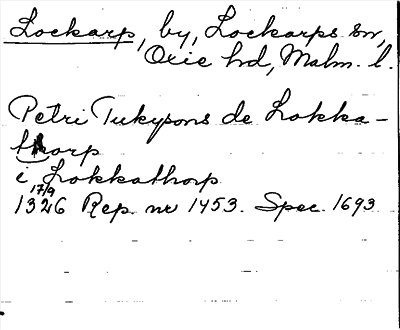 Lockarp, by, Lockarps sn,
Oxie hd, Malm. l.
Petri Tukysons de Lokka-
thorp
i Lokkathorp
17/9
1326 Rep. nr 1453. Spec. 1693